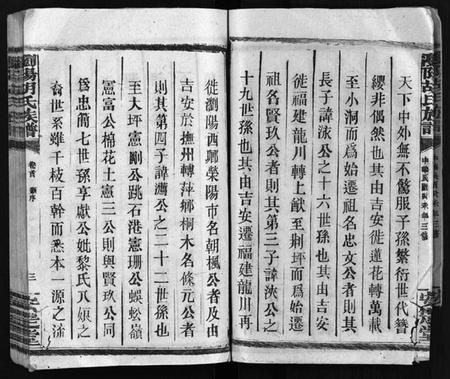 天下中外無不驚服子孫繁衍世代簪
纓非偶然也其由吉徙蓮花轉萬載
至小洞而爲始遷祖名忠文公者則其
長子諱泳公之十六世孫也其由吉安
徙福建龍川轉上猷至荆坪而爲始遷
祖名賢玖公者則其第三子諱浹公之
十九世孫也其由吉安遷福建龍川再
徙瀏陽西鄉滎陽市名朝楓公者及由
吉安於撫州轉萍鄉桐木名條元公者
則其第四子諱灣公之二十二世孫也
至大坪憲剛公跳石港憲珊公蜈蚣嶺
憲富公棉花土憲三公則與賢玖公同
爲忠簡七世孫享獻公妣黎氏八娘之
裔世系雖千枝百幹而悉本一源之流
瀏陽胡氏族譜
卷首 新序
三
瀏陽胡氏族譜